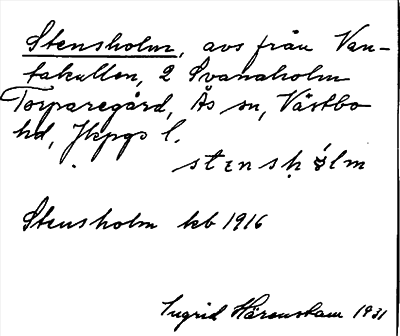 Stensholm, avs från Van-
takullen, 2 Svanaholm
Torparegård, Ås sn, Västbo
hd, Jkpgs l.
stensḥòlm
Stensholm kb 1916
Ingrid Härenstam 1931